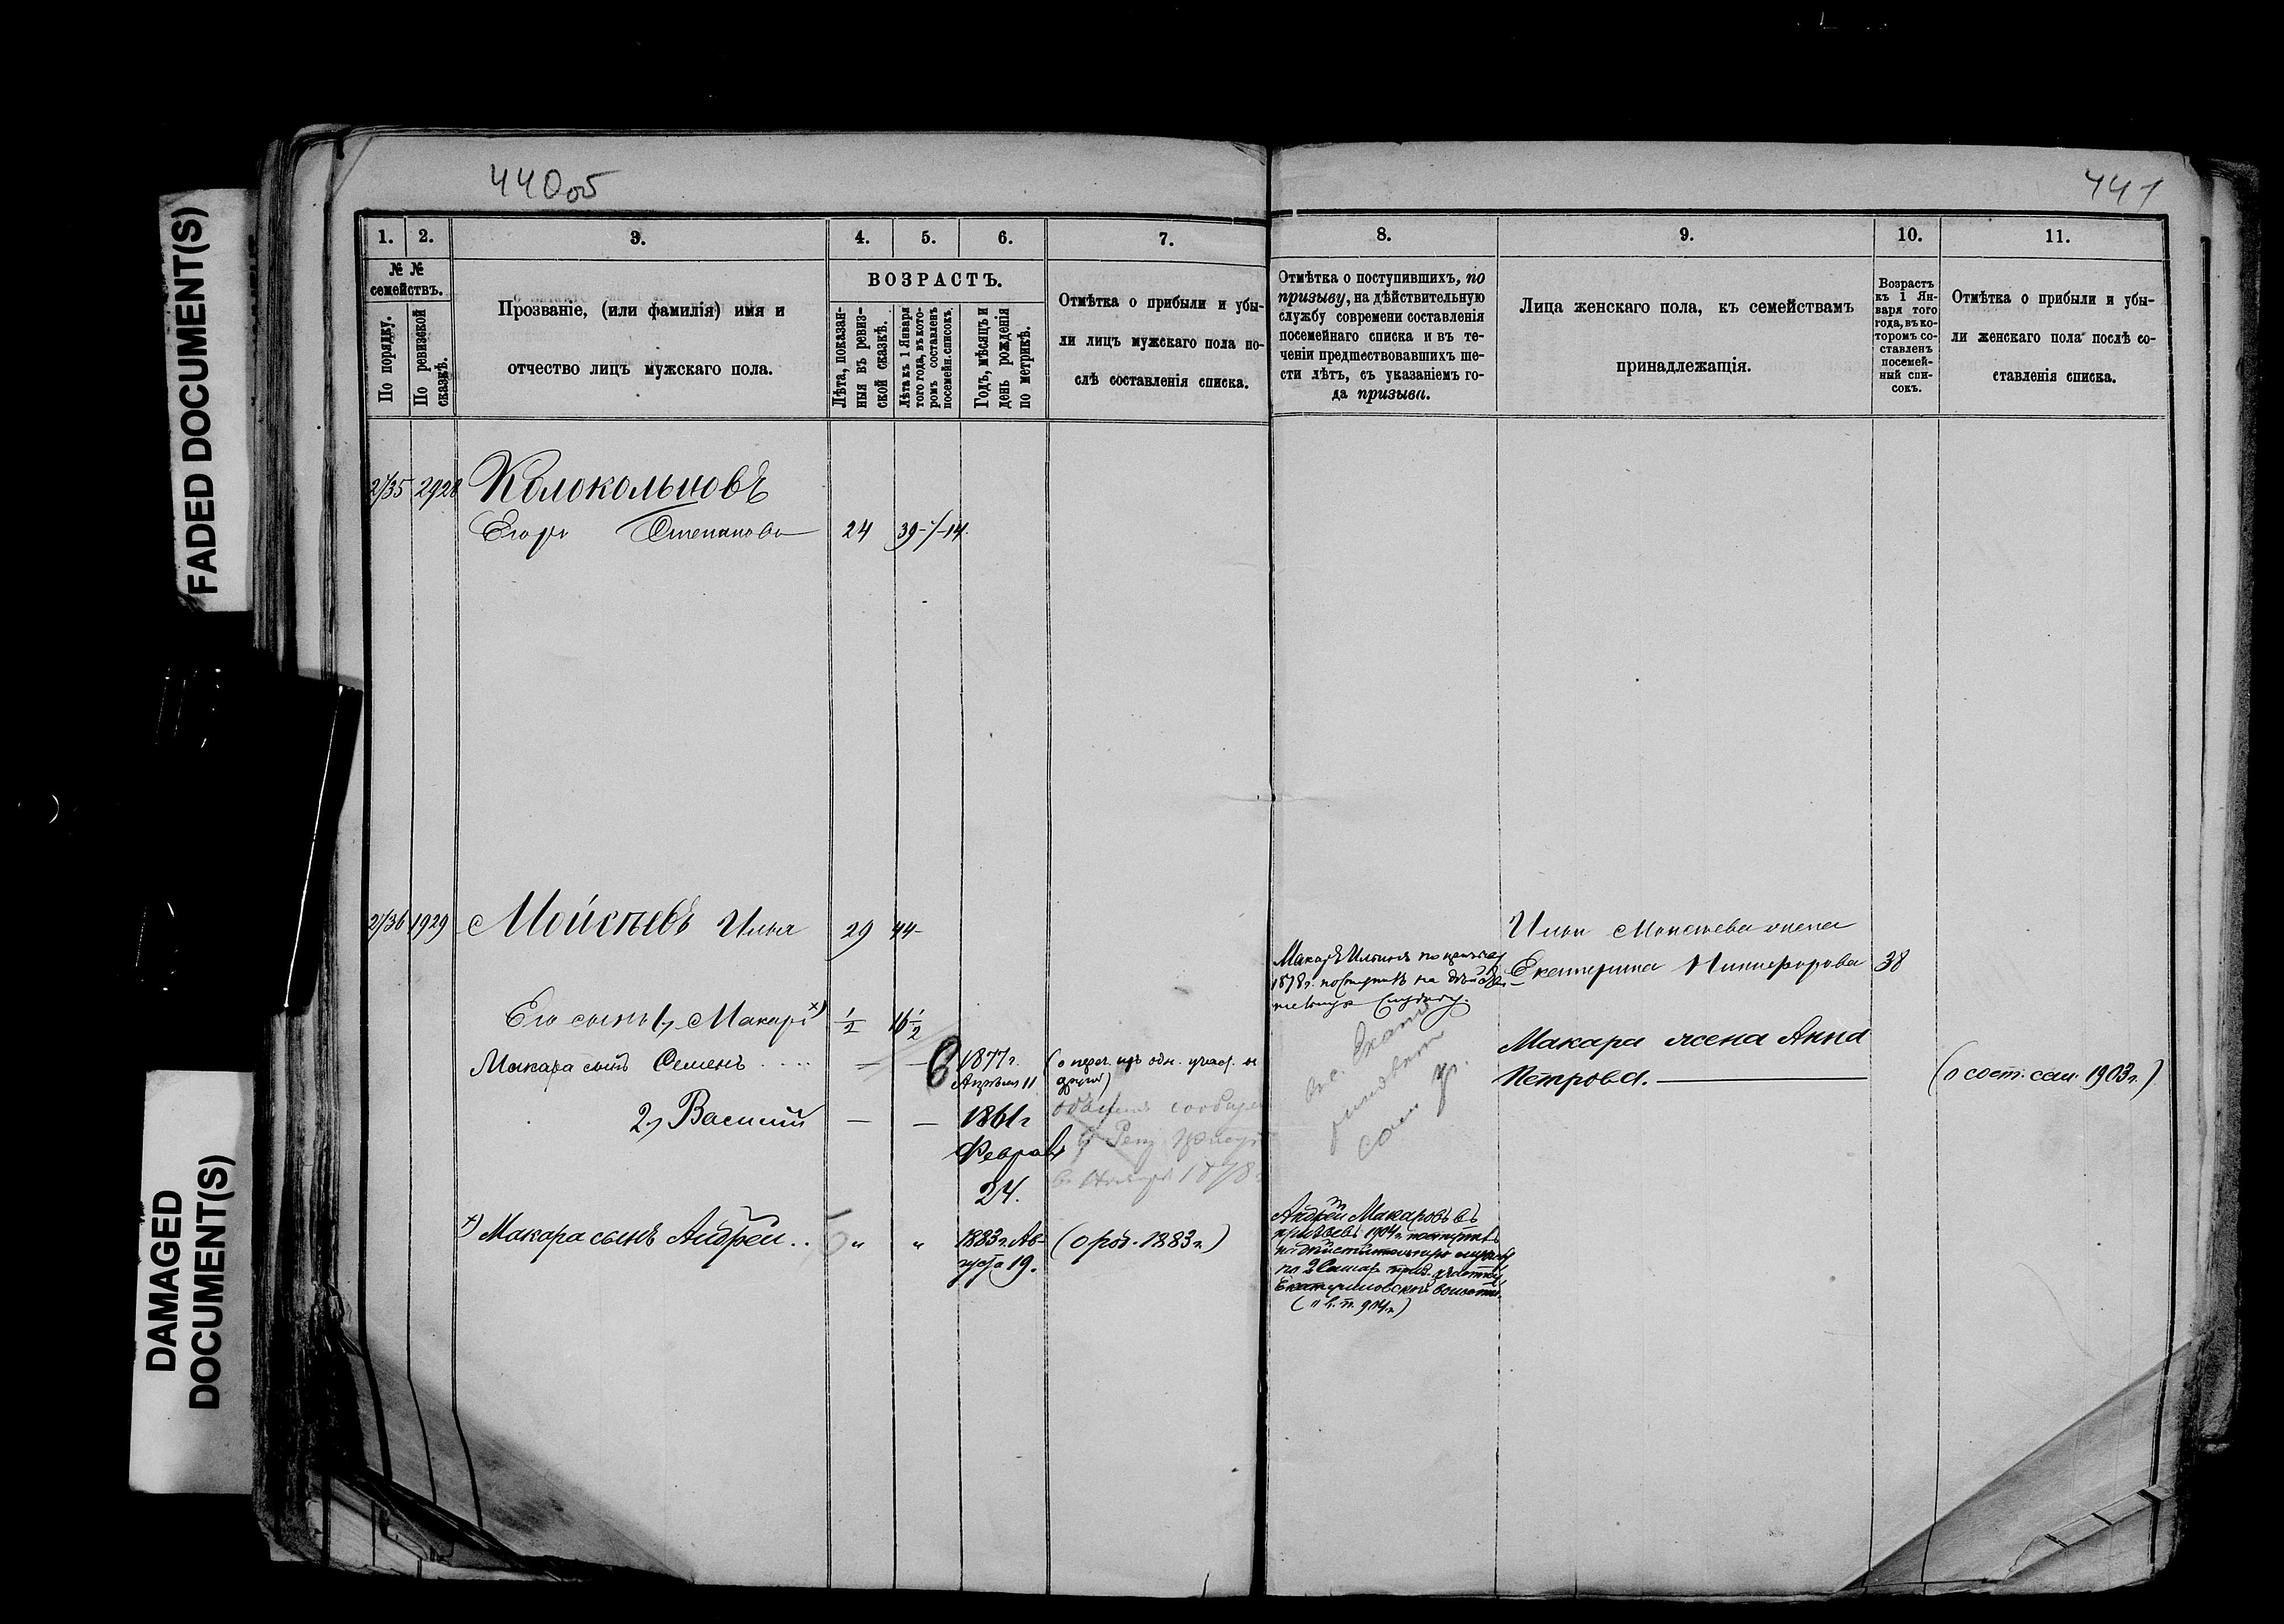 FADED DOCUMENT(S)
DAMAGED
DOCUMENT(S)
440об
441
1. 2. 3. 4. 5. 6. 7. 8. 9. 10. 11.
№ №
семействъ.
По порядку.
По ревизской
сказкѣ.
Прозваніе, (или фамилія) имя и
отчество лицъ мужскаго пола.
ВОЗРАСТЪ.
Лѣта, показан-
ныя въ ревиз-
ской сказкѣ.
Лѣта къ 1 Января
того года, въ кото-
ромъ составленъ
посемейн. списокъ.
Годъ, мѣсяцъ и
день рожденія
по метрикѣ.
Отмѣтка о прибыли и убы-
ли лицъ мужскаго пола по-
слѣ составленія списка.
Отмѣтка о поступившихъ, по
призыву, на дѣйствительную
службу современи составленія
посемейнаго списка и въ те-
ченіи предшествовавшихъ ше-
сти лѣтъ, съ указаніемъ го-
да призыва.
Лица женскаго пола, къ семействамъ
принадлежащія.
Возрастъ
къ 1 Ян-
варя того
года, въ ко-
торомъ со-
ставленъ
посемей-
ный спи-
сокъ.
Отмѣтка о прибыли и убы-
ли женскаго пола послѣ со-
ставленія списка.
2/35 2928 Колокольцовъ
Егоръ Степановъ 24 39-/-14.
2/36 1929 Мойсѣевъ Илья 29 44-
Ильи Моисеева жена
Екатерина Никифорова 38
Макаръ Ильинъ по призыву
1878г. поступилъ на дѣйстви-
тельную службу.
Его сынъ 1, Макаръ х) ½ 16½
Макара жена Анна
Петрова.
(о сост. сем. 1903г.)
Макара сынъ Семенъ 1877г.
Апрѣля 11
(о переч. изъ одн. участ. въ
другой)
2, Василій — — 1861г
Февраля
24.
1878
х) Макара сынъ Андрей.. „ „ 1883г. Ав-
густа 19.
(о род. 1883г.)
Андрей Макаровъ въ
призывъ 1904г. поступилъ
на дѣйствительную службу
по 2 призыв. участку
Екатериновской волости.